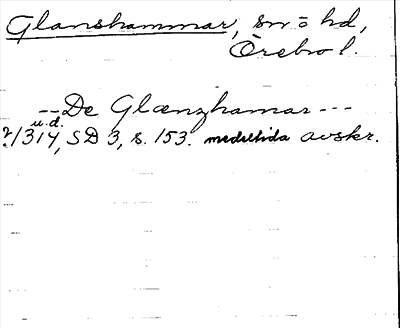 Glanshammar, sn o hd,
Örebro l.
--- De Glænzhamar ---
u.d.
?/1314, SD 3, s. 153. medeltida avskr.